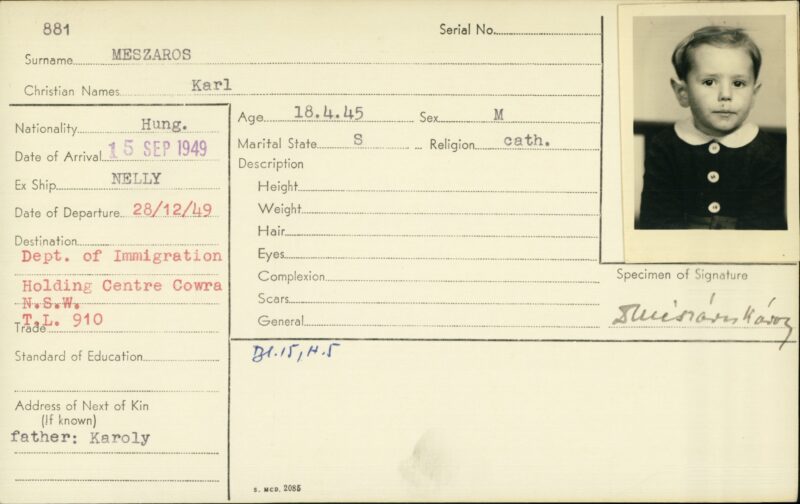 881
Serial No.
Surname MESZAROS
Christian Names Karl
Nationality Hung.
Date of Arrival 15 SEP 1949
Ex Ship NELLY
Date of Departure 28/12/49
Destination
Dept. of Immigration
Holding Centre Cowra
N.S.W.
T.L. 910
Trade
Standard of Education
Address of Next of Kin
(If known)
father: Karoly
Age 18.4.45 Sex M
Marital State S Religion cath.
Description
Height
Weight
Hair
Eyes
Complexion
Scars
General
Bl.15, H.5
S. MCD. 2085
Specimen of Signature